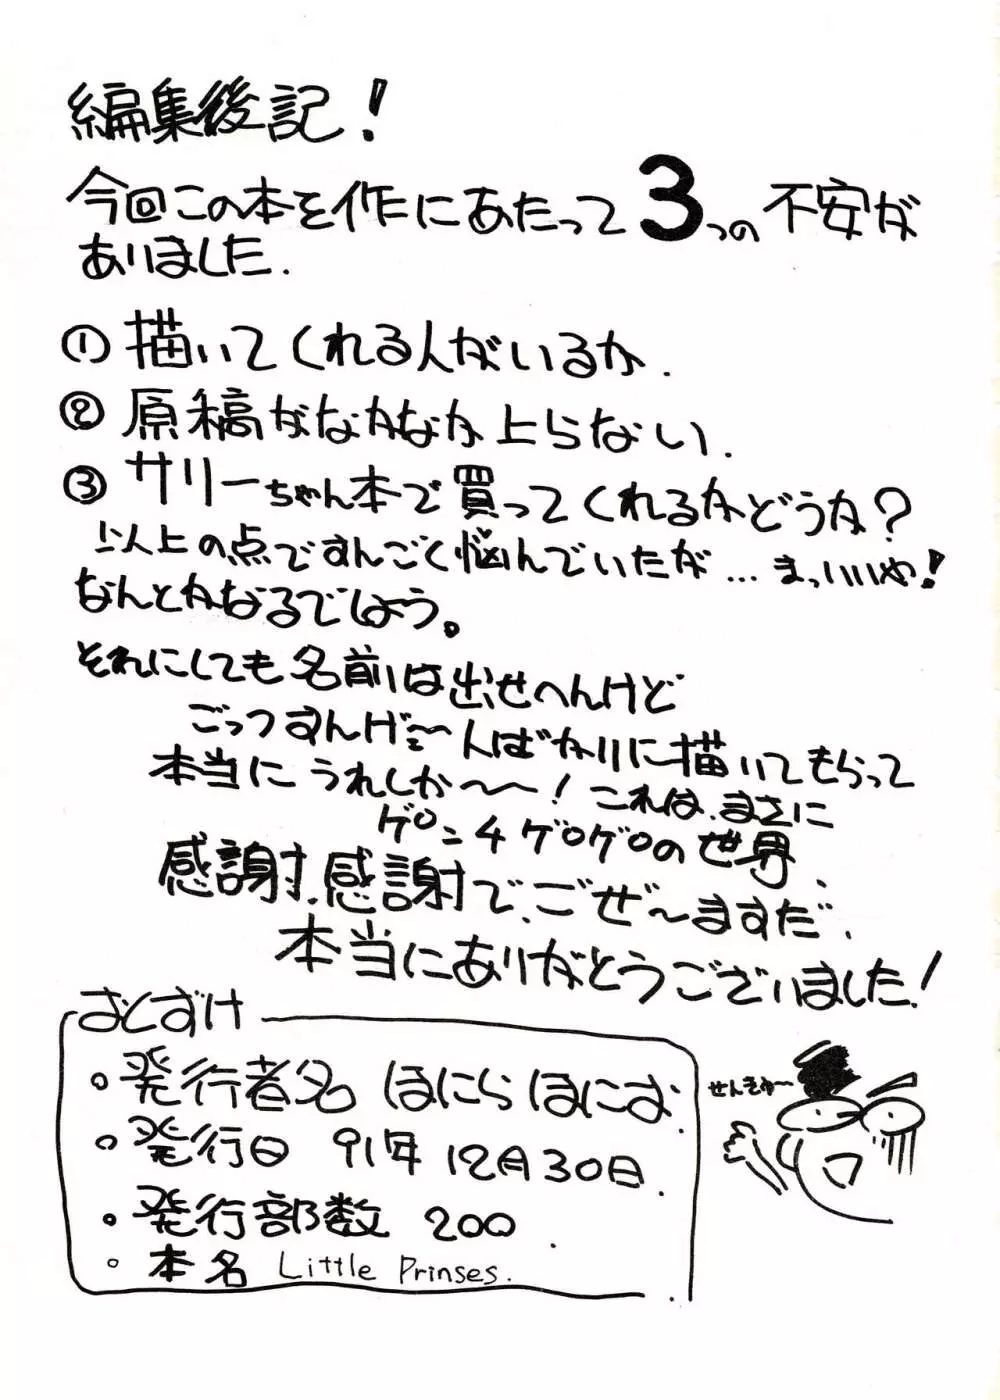 編集後記!
今回この本を作にあたって3つの不安が
ありました.
① 描いてくれる人がいるか.
② 原稿がなかなか上らない.
③ サリーちゃん本で買ってくれるかどうか?
以上の点ですんごく悩んでいたが...まっいいや!
なんとかなるでしょう。
それにしても名前は出せへんけど
ごっつすんげー人ばかりに描いてもらって
本当にうれしか〜〜!これは、まさに
ゲロニ4ゲロゲロの世界.
感謝.感謝で、ござぜ〜ますだ.
本当にありがとうございました!
おくずけ
・発行者名 ほにらほにお
・発行日 91年12月30日.
・発行部数 200.
・本名 Little Prinses.
せんきゅ〜